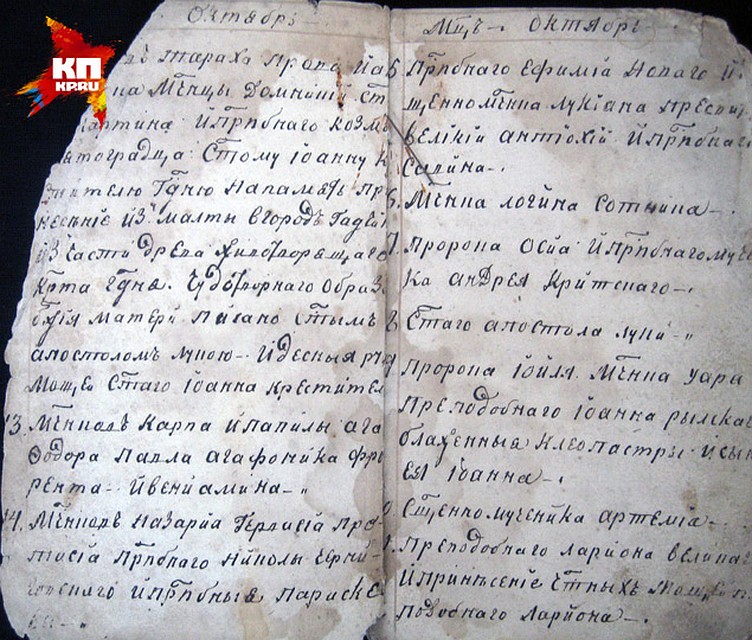 КП
KP.RU
Октябрь
Тараха Прова
на Мчнцы Домникіи Ст
Мартина. И Прпбнаго Козм
Стому Іоанну К
Гдню Напамять пр
несеніе Из малты вгородъ Гадчи
из части древа Животворящаго
Крта Гдня. Чудотворнаго Образ
бжія матери. писано Стымъ
апостоломъ лукою. И десныя ру
мощей Стаго Іоанна Крестител
13. Мчнковъ Карпа Ипапилы ага
Ѳодора Павла агафоника фло
рента. Ивеніамина
14. Мчнковъ Назарія Гервасія Про
тасія Прпбнаго Николы Черни
говскаго И Прпбныя Параске
Мцъ Октябрь
Прпбнаго Ефимія Новаго И
щенномчнка лукіана пресви
великій антіохіи. И Прпбнаг
Савина
6. Мчнка логина сотника
7. пророка Осіа И Прпбномуче
ка андрея Критскаго
8. Стаго апостола луки
9 пророка Іоиля. Мчнка уара
Преподобнаго Іоанна рылска
блаженныя Клеопатры Исын
ея Іоанна
0. Сщенномученика артемія
1. преподобнаго ларіона велика
И принесеніе Стныхъ мощей п
подобнаго Ларіона